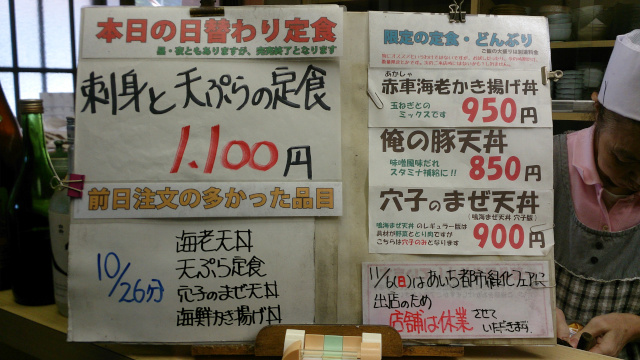 本日の日替わり定食
昼・夜ともありますが、完売終了となります
刺身と天ぷらの定食
1,100円
前日注文の多かった品目
10/26分
海老天丼
天ぷら定食
穴子のまぜ天丼
海鮮かき揚げ丼
限定の定食・どんぶり
あかしゃ
赤車海老かき揚げ丼
玉ねぎとの
ミックスです
950円
俺の豚天丼
味噌風味だれ
スタミナ補給に!!
850円
穴子のまぜ天丼
(鳴海まぜ天丼 穴子版)
鳴海まぜ天丼 のレギュラー版は
具材が野菜ととり肉ですが
こちらは穴子のみとなります
900円
11/6(日)はあいち都市緑化フェアに
出店のため
店舗は休業させて
いただきます。